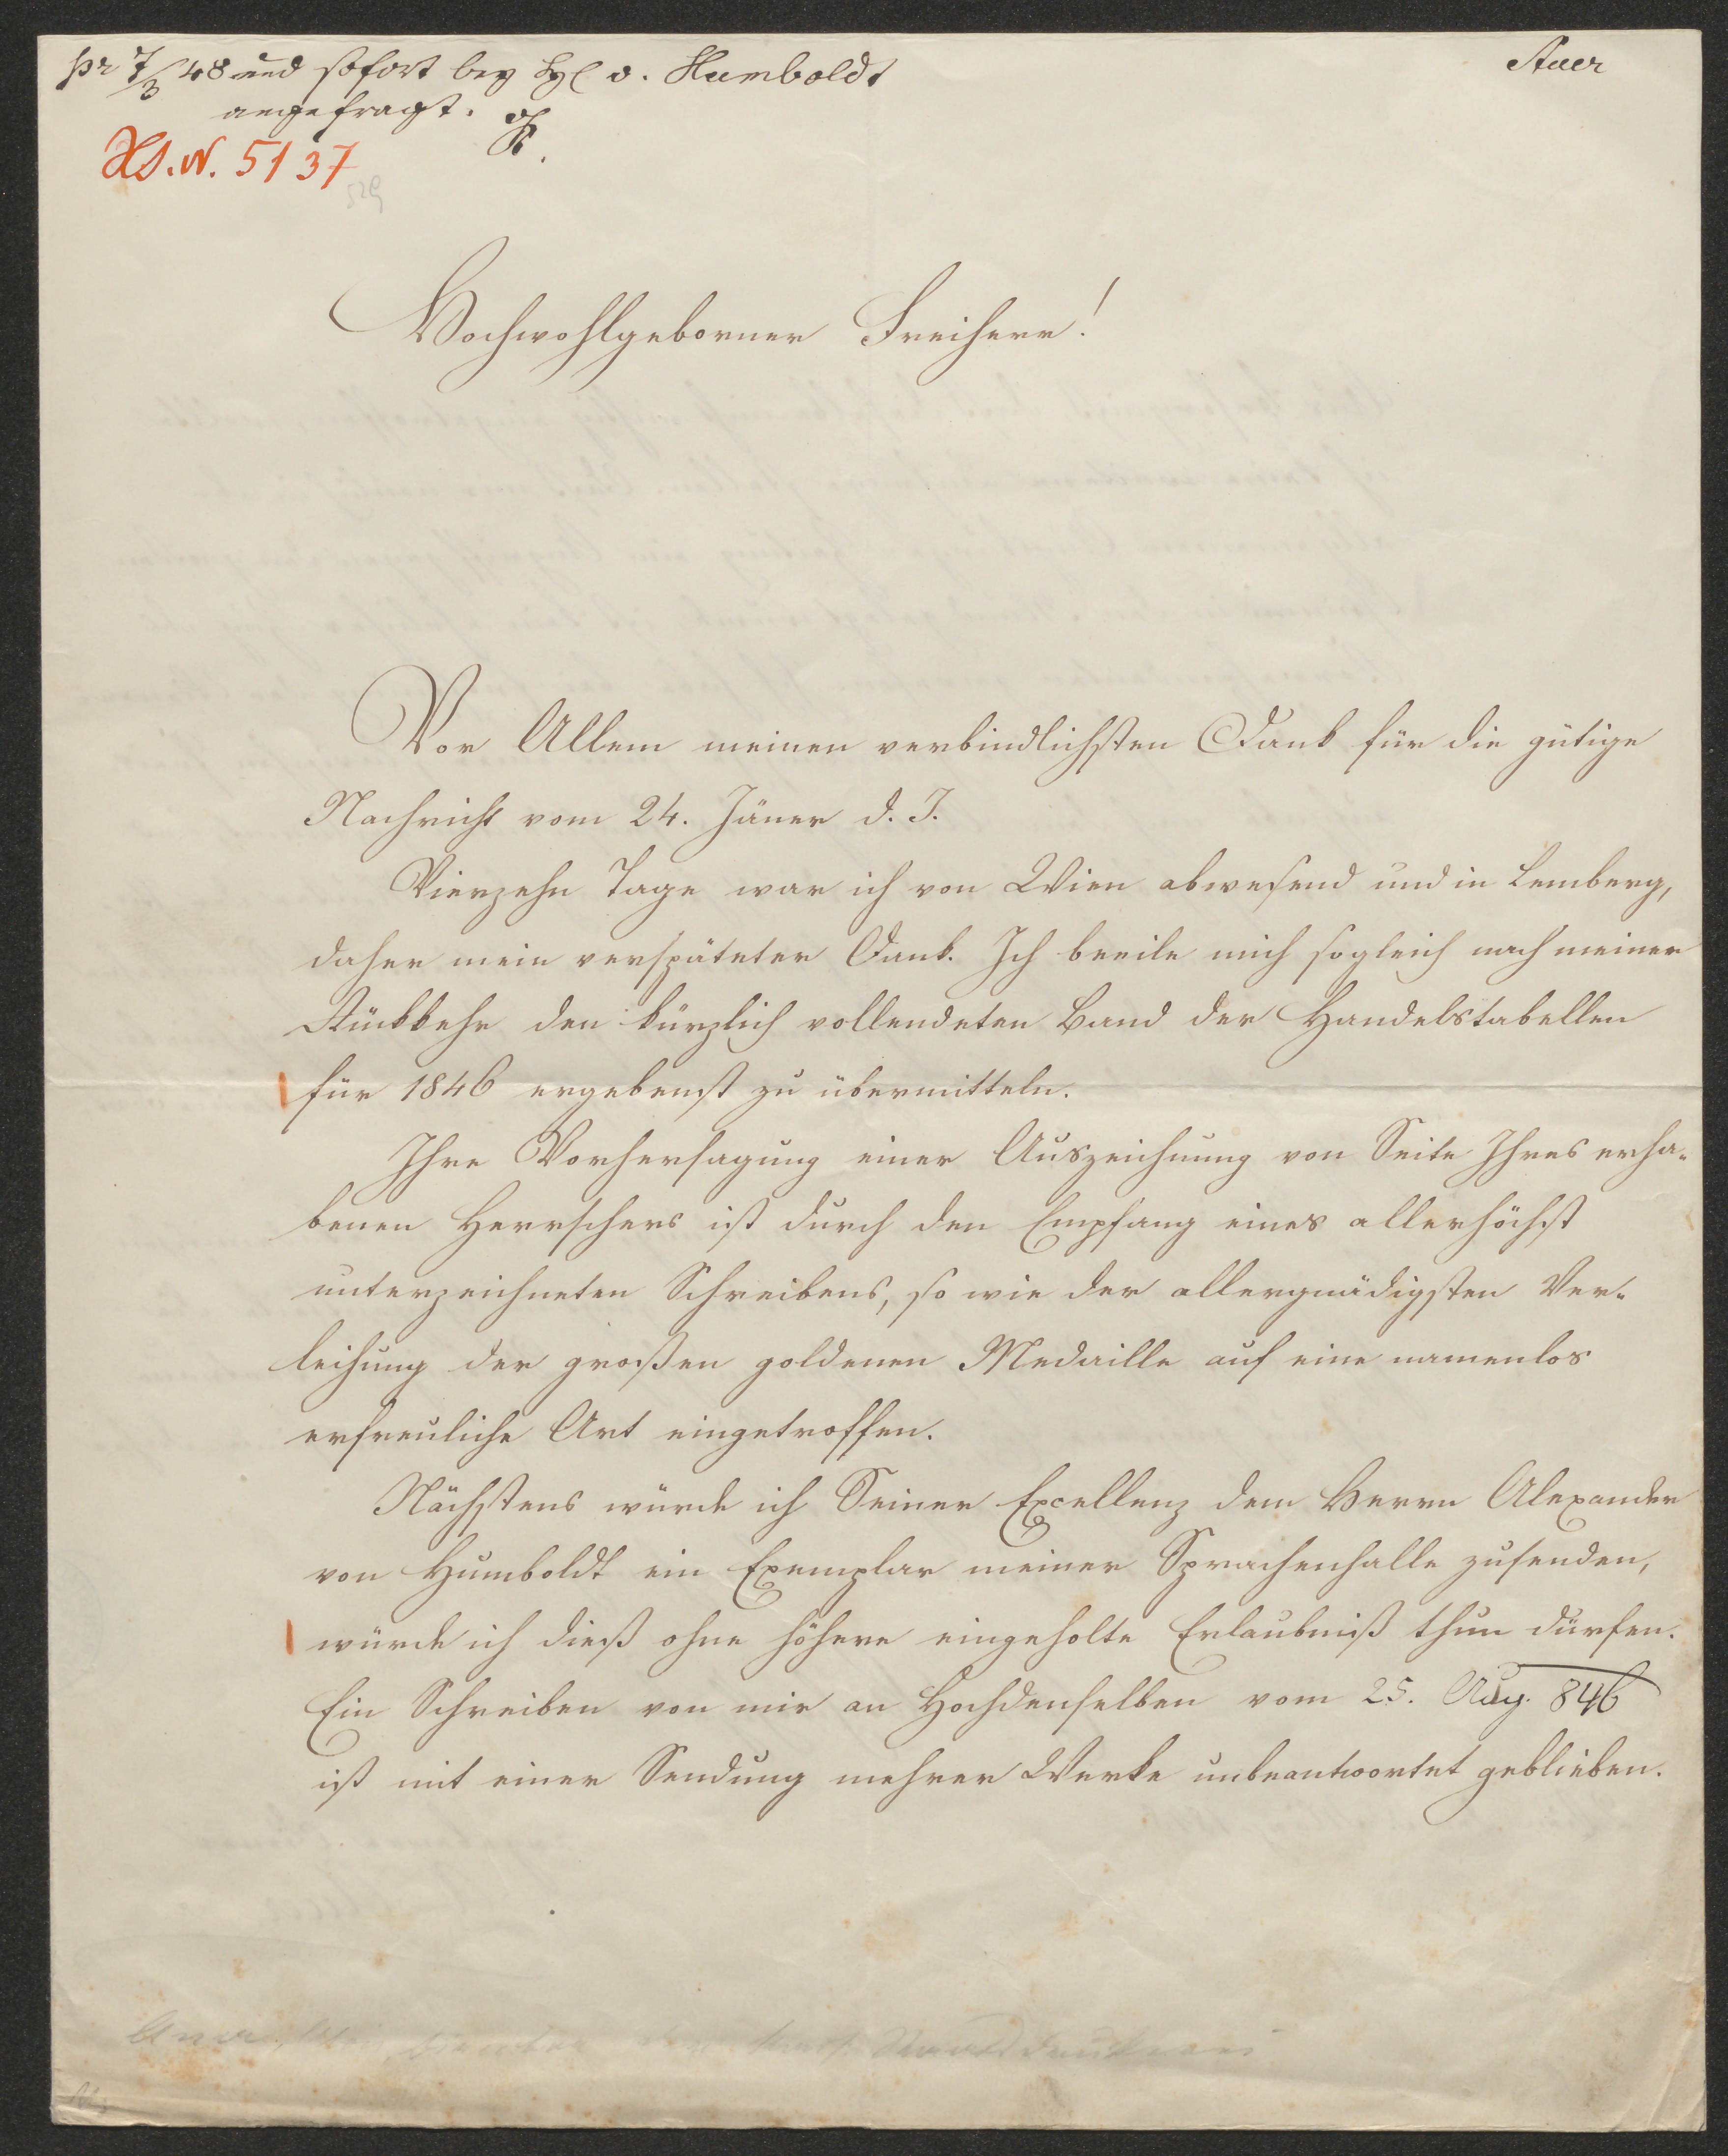 pr 7/3 48 und sofort bey v. Humboldt
angefragt.
Auer
Hs. N. 5137
529
Hochwohlgeborner Freiherr!
Vor Allem meinen verbindlichsten Dank für die gütige
Nachricht vom 24. Jäner d. J.
Vierzehn Tage war ich von Wien abwesend und in Lemberg,
daher mein verspäteter Dank. Ich beeile mich sogleich nach meiner
Rückkehr den kürzlich vollendeten Band der Handelstabellen
für 1846 ergebenst zu übermitteln.
Ihre Vorhersagung einer Auszeichnung von Seite Ihres erha-
benen Herrschers ist durch den Empfang eines allerhöchst
unterzeichneten Schreibens, so wie der allergnädigsten Ver-
leihung der großen goldenen Medaille auf eine namenlos
erfreuliche Art eingetroffen.
Nächstens würde ich Seiner Excellenz dem Herrn Alexander
von Humboldt ein Exemplar meiner Sprachenhalle zusenden,
würde ich dieß ohne höhere eingeholte Erlaubniß thun dürfen.
Ein Schreiben von mir an Hochdenselben vom 25. Aug. 846
ist mit einer Sendung mehrer Werke unbeantwortet geblieben.